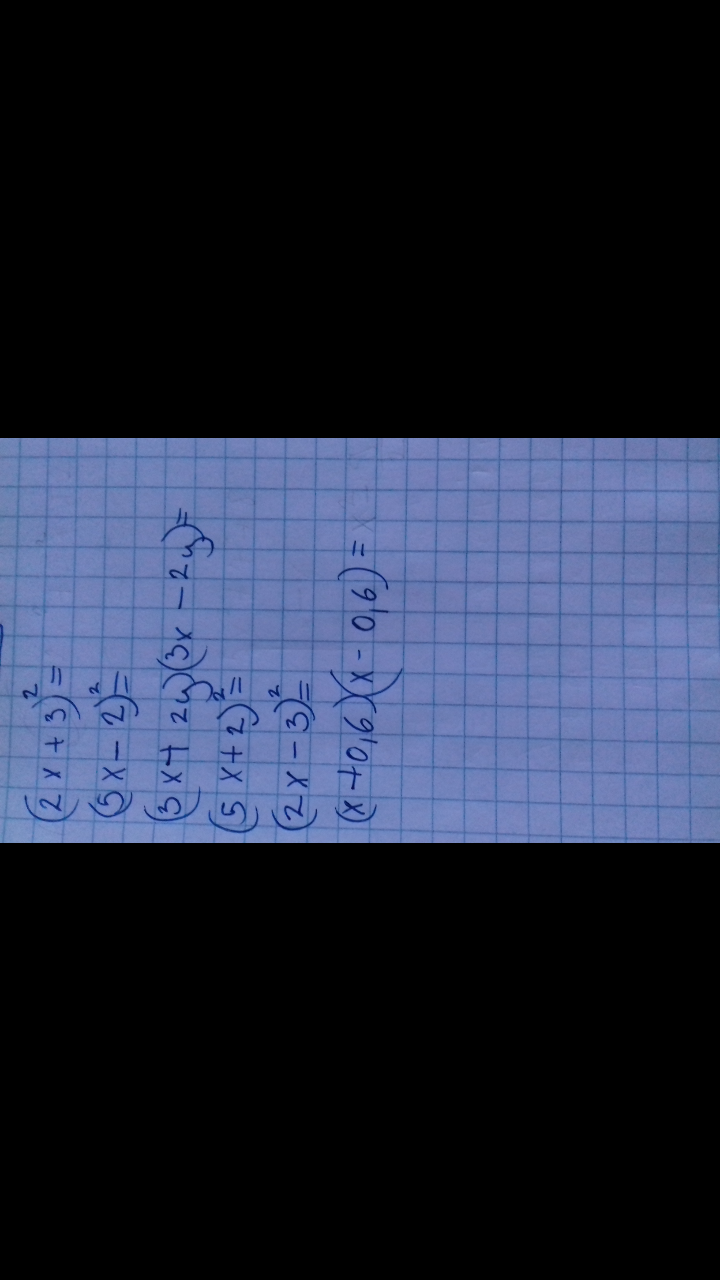 (2x+3)²=
(5x-2)²=
(3x+2y)(3x-2y)=
(5x+2)²=
(2x-3)²=
(x+0,6)(x-0,6)=